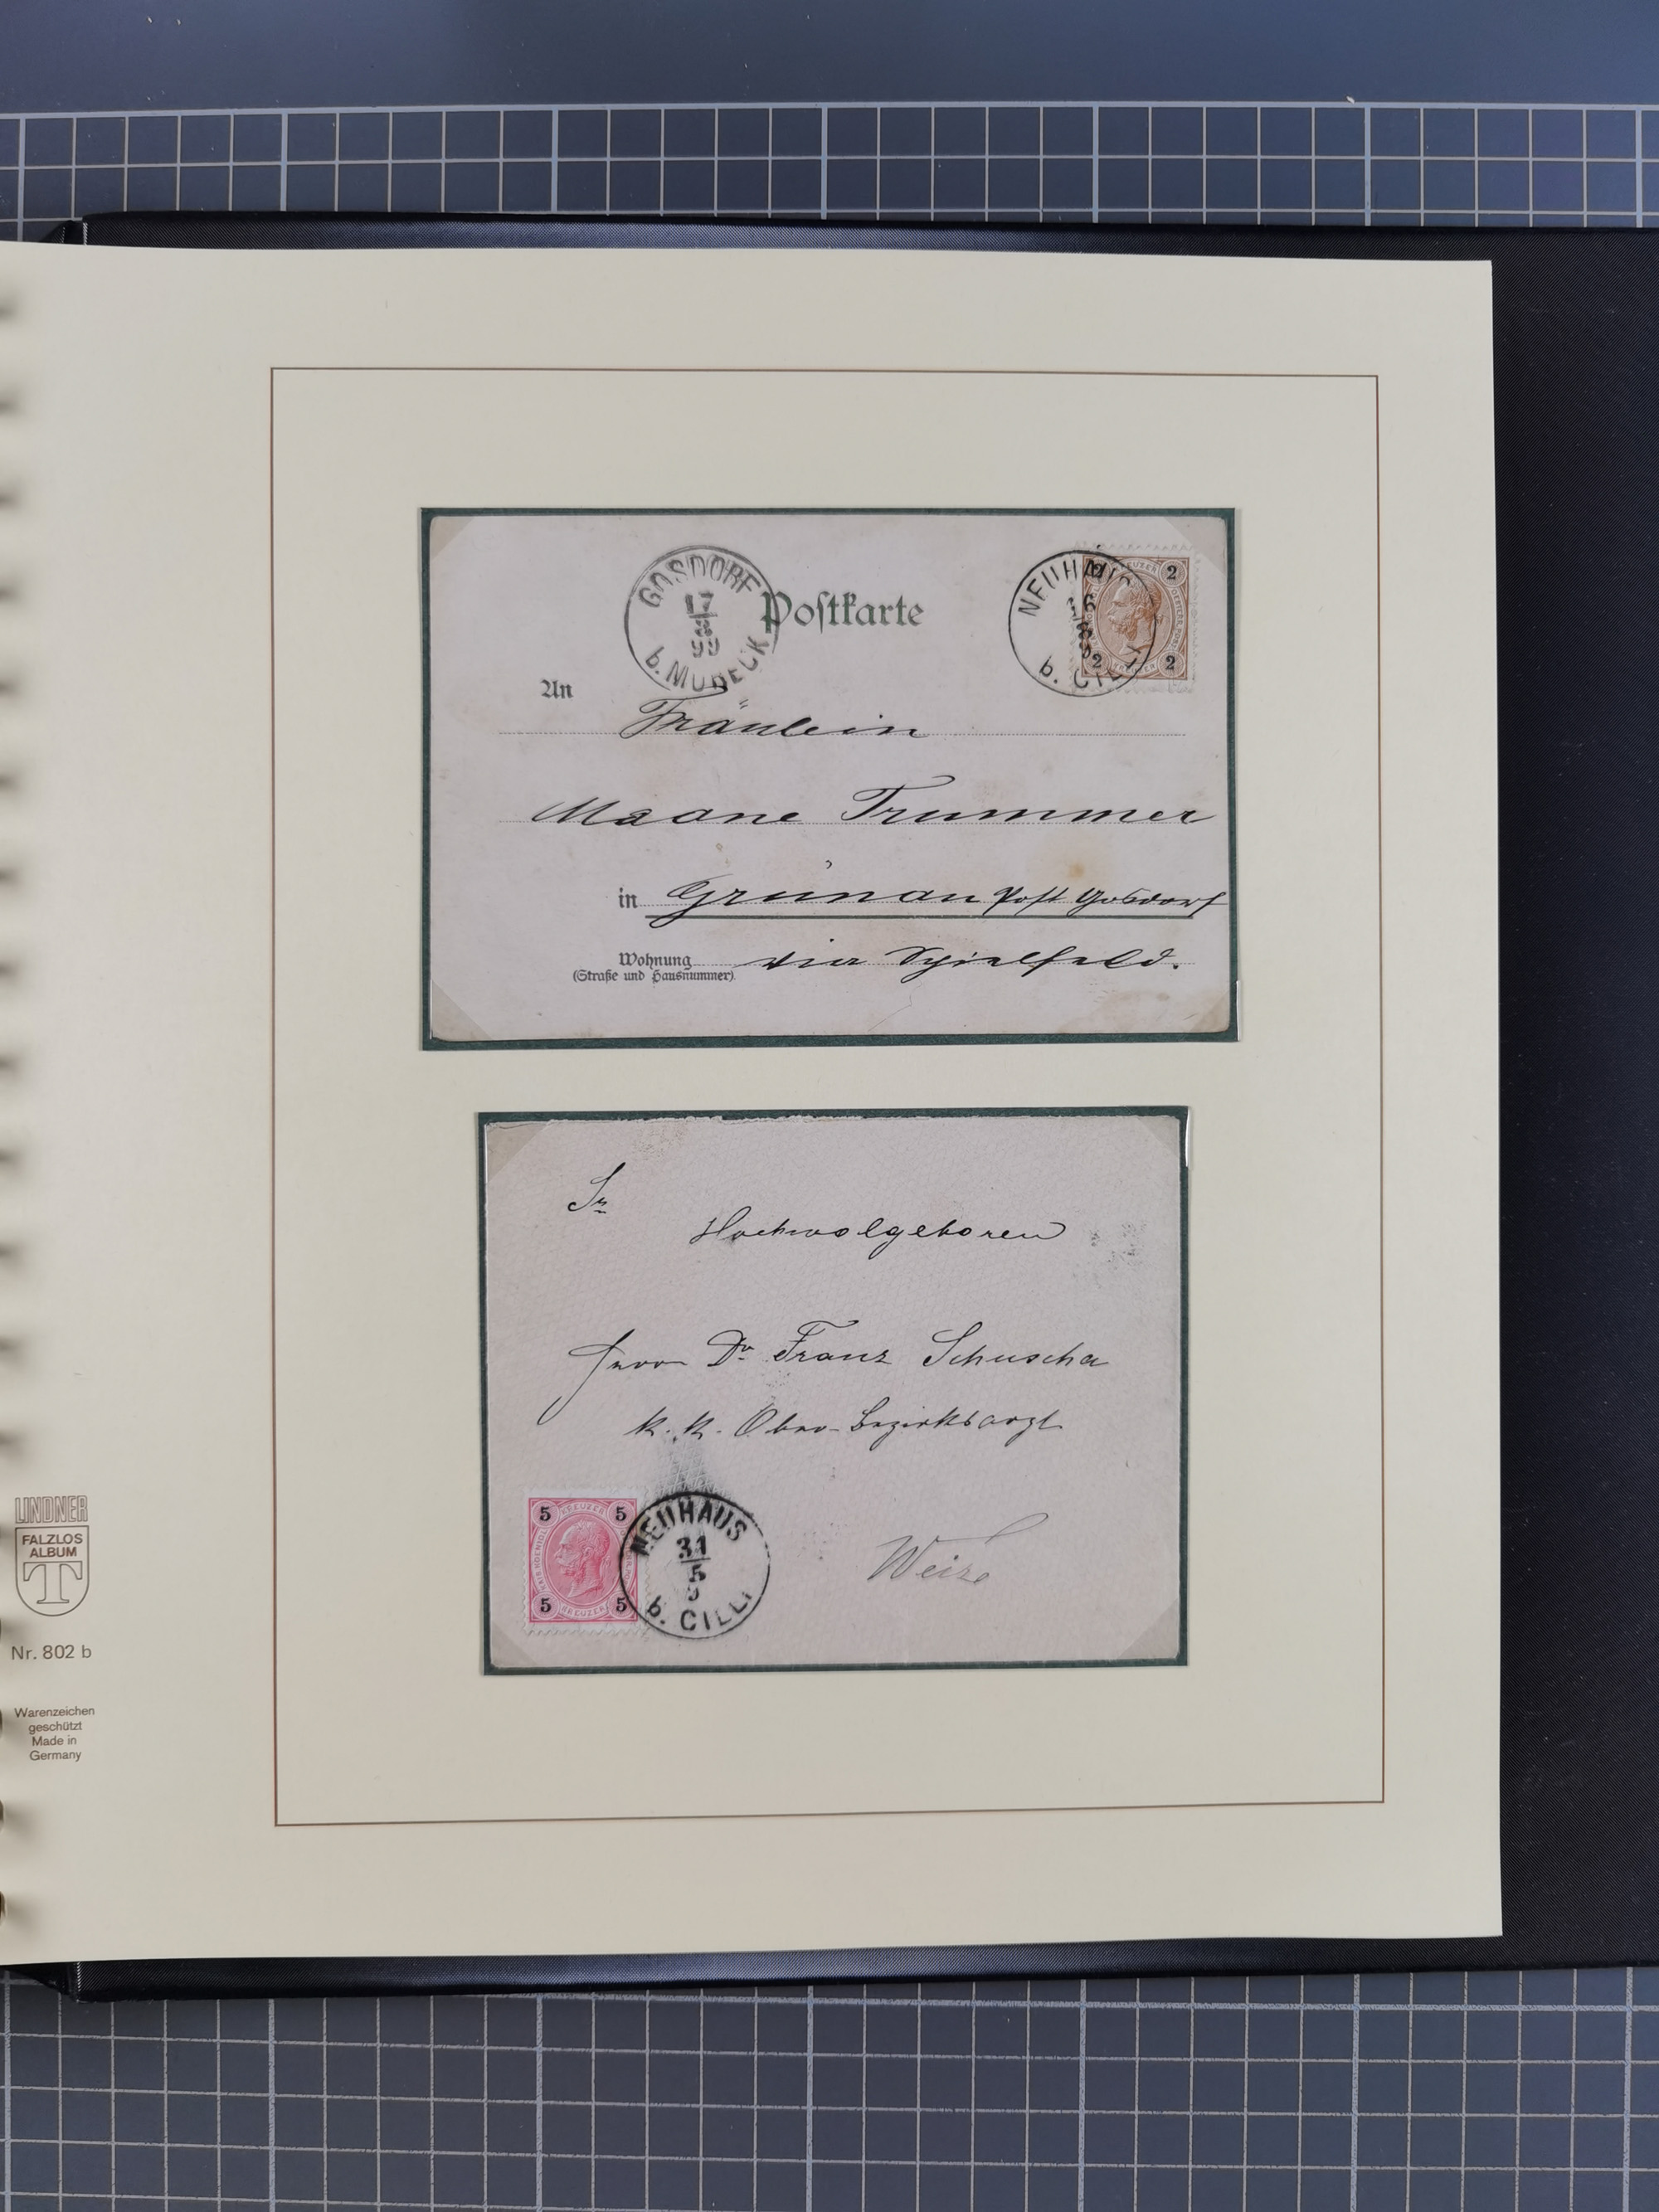 GOSDORF
17
8
99
b. MURECK
Postkarte
NEUHAUS
16
8
b. CILLI
2 KREUZER 2
2 2
An
Fräulein
Trummer
in Grünau Post Gosdorf
Wohnung via Spielfeld.
(Straße und Hausnummer)
Sr
Hochwolgeboren
Herrn Dr Franz Schuscha
k. k. Ober-Bezirksarzt
5 KREUZER 5
5 KREUZER 5
NEUHAUS
31
5
9
b. CILLI
Weiz
LINDNER
FALZLOS
ALBUM
T
Nr. 802 b
Warenzeichen
geschützt
Made in
Germany